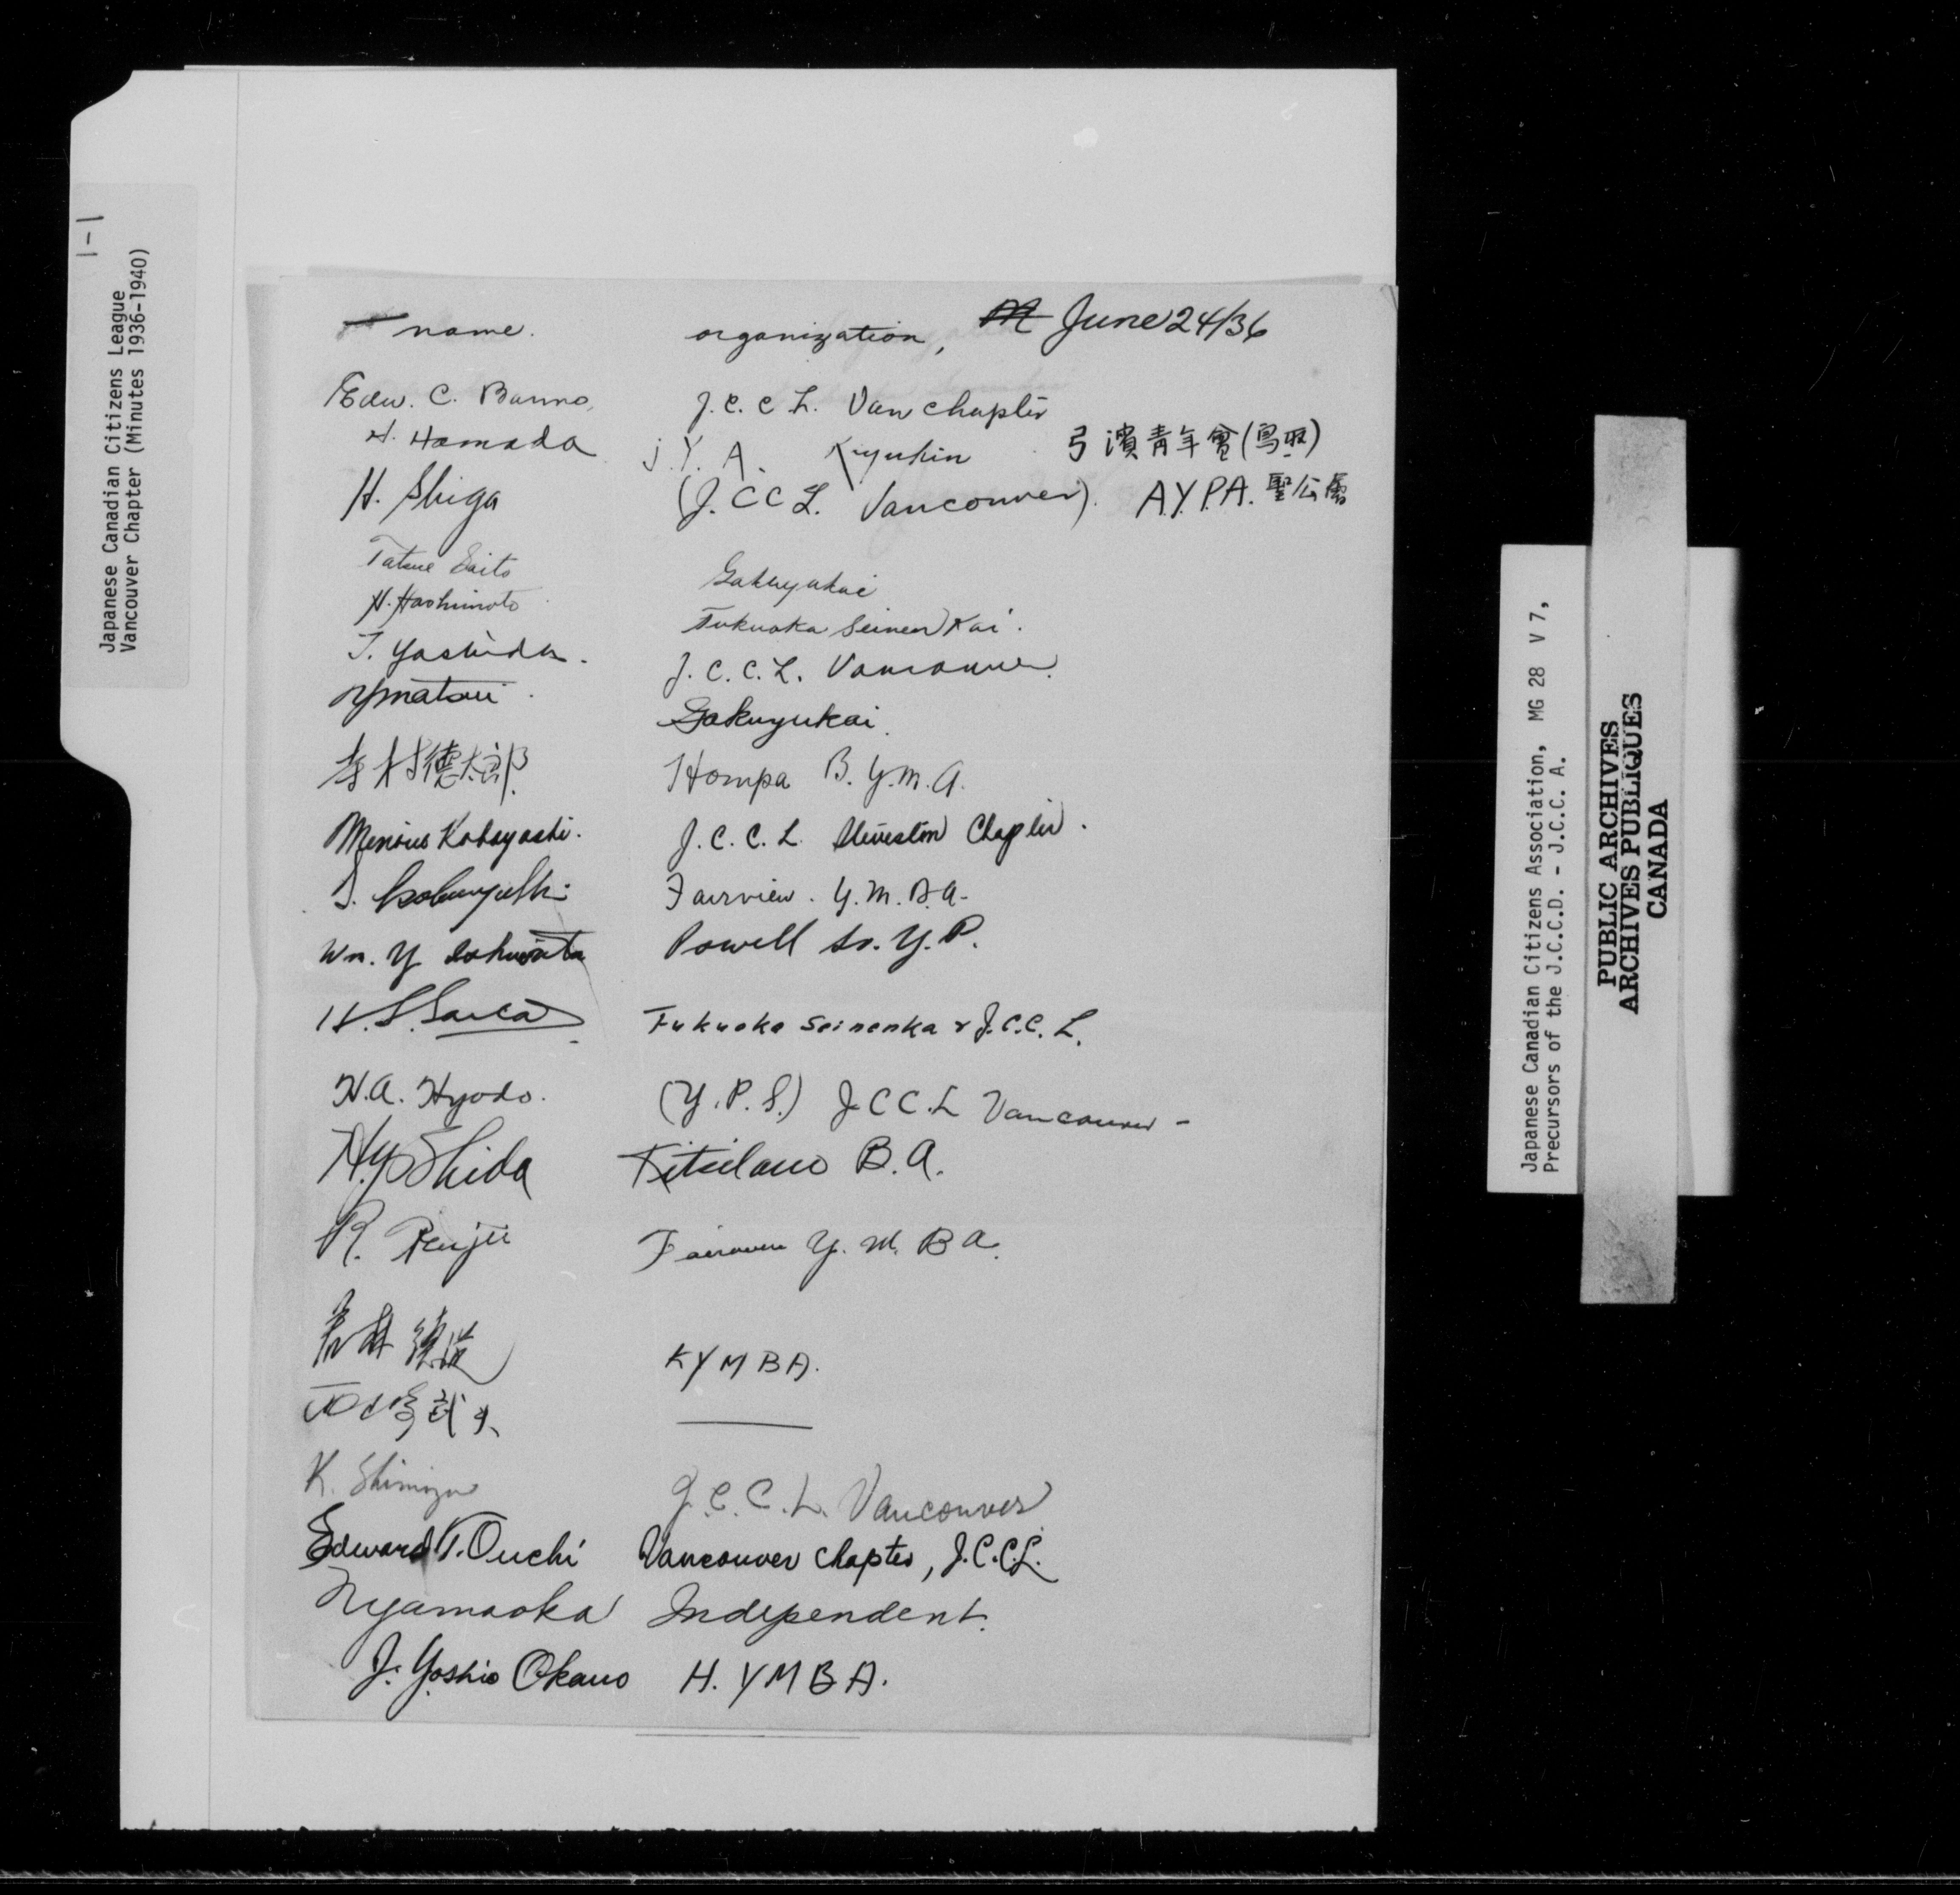 1-1
Japanese Canadian Citizens League
Vancouver Chapter (Minutes 1936-1940)
name. organization, June 24/36
Edw. C. Banno, J.C.C.L. Van Chapter
H. Hamada J.Y.A. Kyuhin 弓濱青年會(鳥取)
H. Shiga (J.C.C.L. Vancouver). A.Y.P.A. 聖公會
Tatsue Saito Gakuyukai
H. Hashimoto Fukuoka Seinen Kai.
T. Yoshida. J.C.C.L. Vancouver.
Gakuyukai.
村德太郎 Hompa B.Y.M.A.
Kobayashi. J.C.C.L. Steveston Chapter.
S. Kobayashi Fairview. Y.M.B.A.
Wm. Y. Powell St. Y.P.
H. S. Fukuoka Seinenka & J.C.C.L.
H.A. Hyodo. (Y.P.S.) J.C.C.L Vancouver -
H. Yoshida Kitsilano B.A.
R. Fairview Y.M.B.A.
K Y M B A.
K. Shimizu J.C.C.L. Vancouver
Edward T. Ouchi Vancouver Chapter, J.C.C.L.
N Yamaoka Independent.
J. Yoshio Okano H. Y M B A.
Japanese Canadian Citizens Association, MG 28 V 7,
Precursors of the J.C.C.D. - J.C.C. A.
PUBLIC ARCHIVES
ARCHIVES PUBLIQUES
CANADA